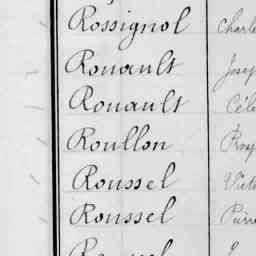 Rossignol Charle
Rouault Josep
Rouault Céle
Roullon
Roussel Victo
Roussel Pierre